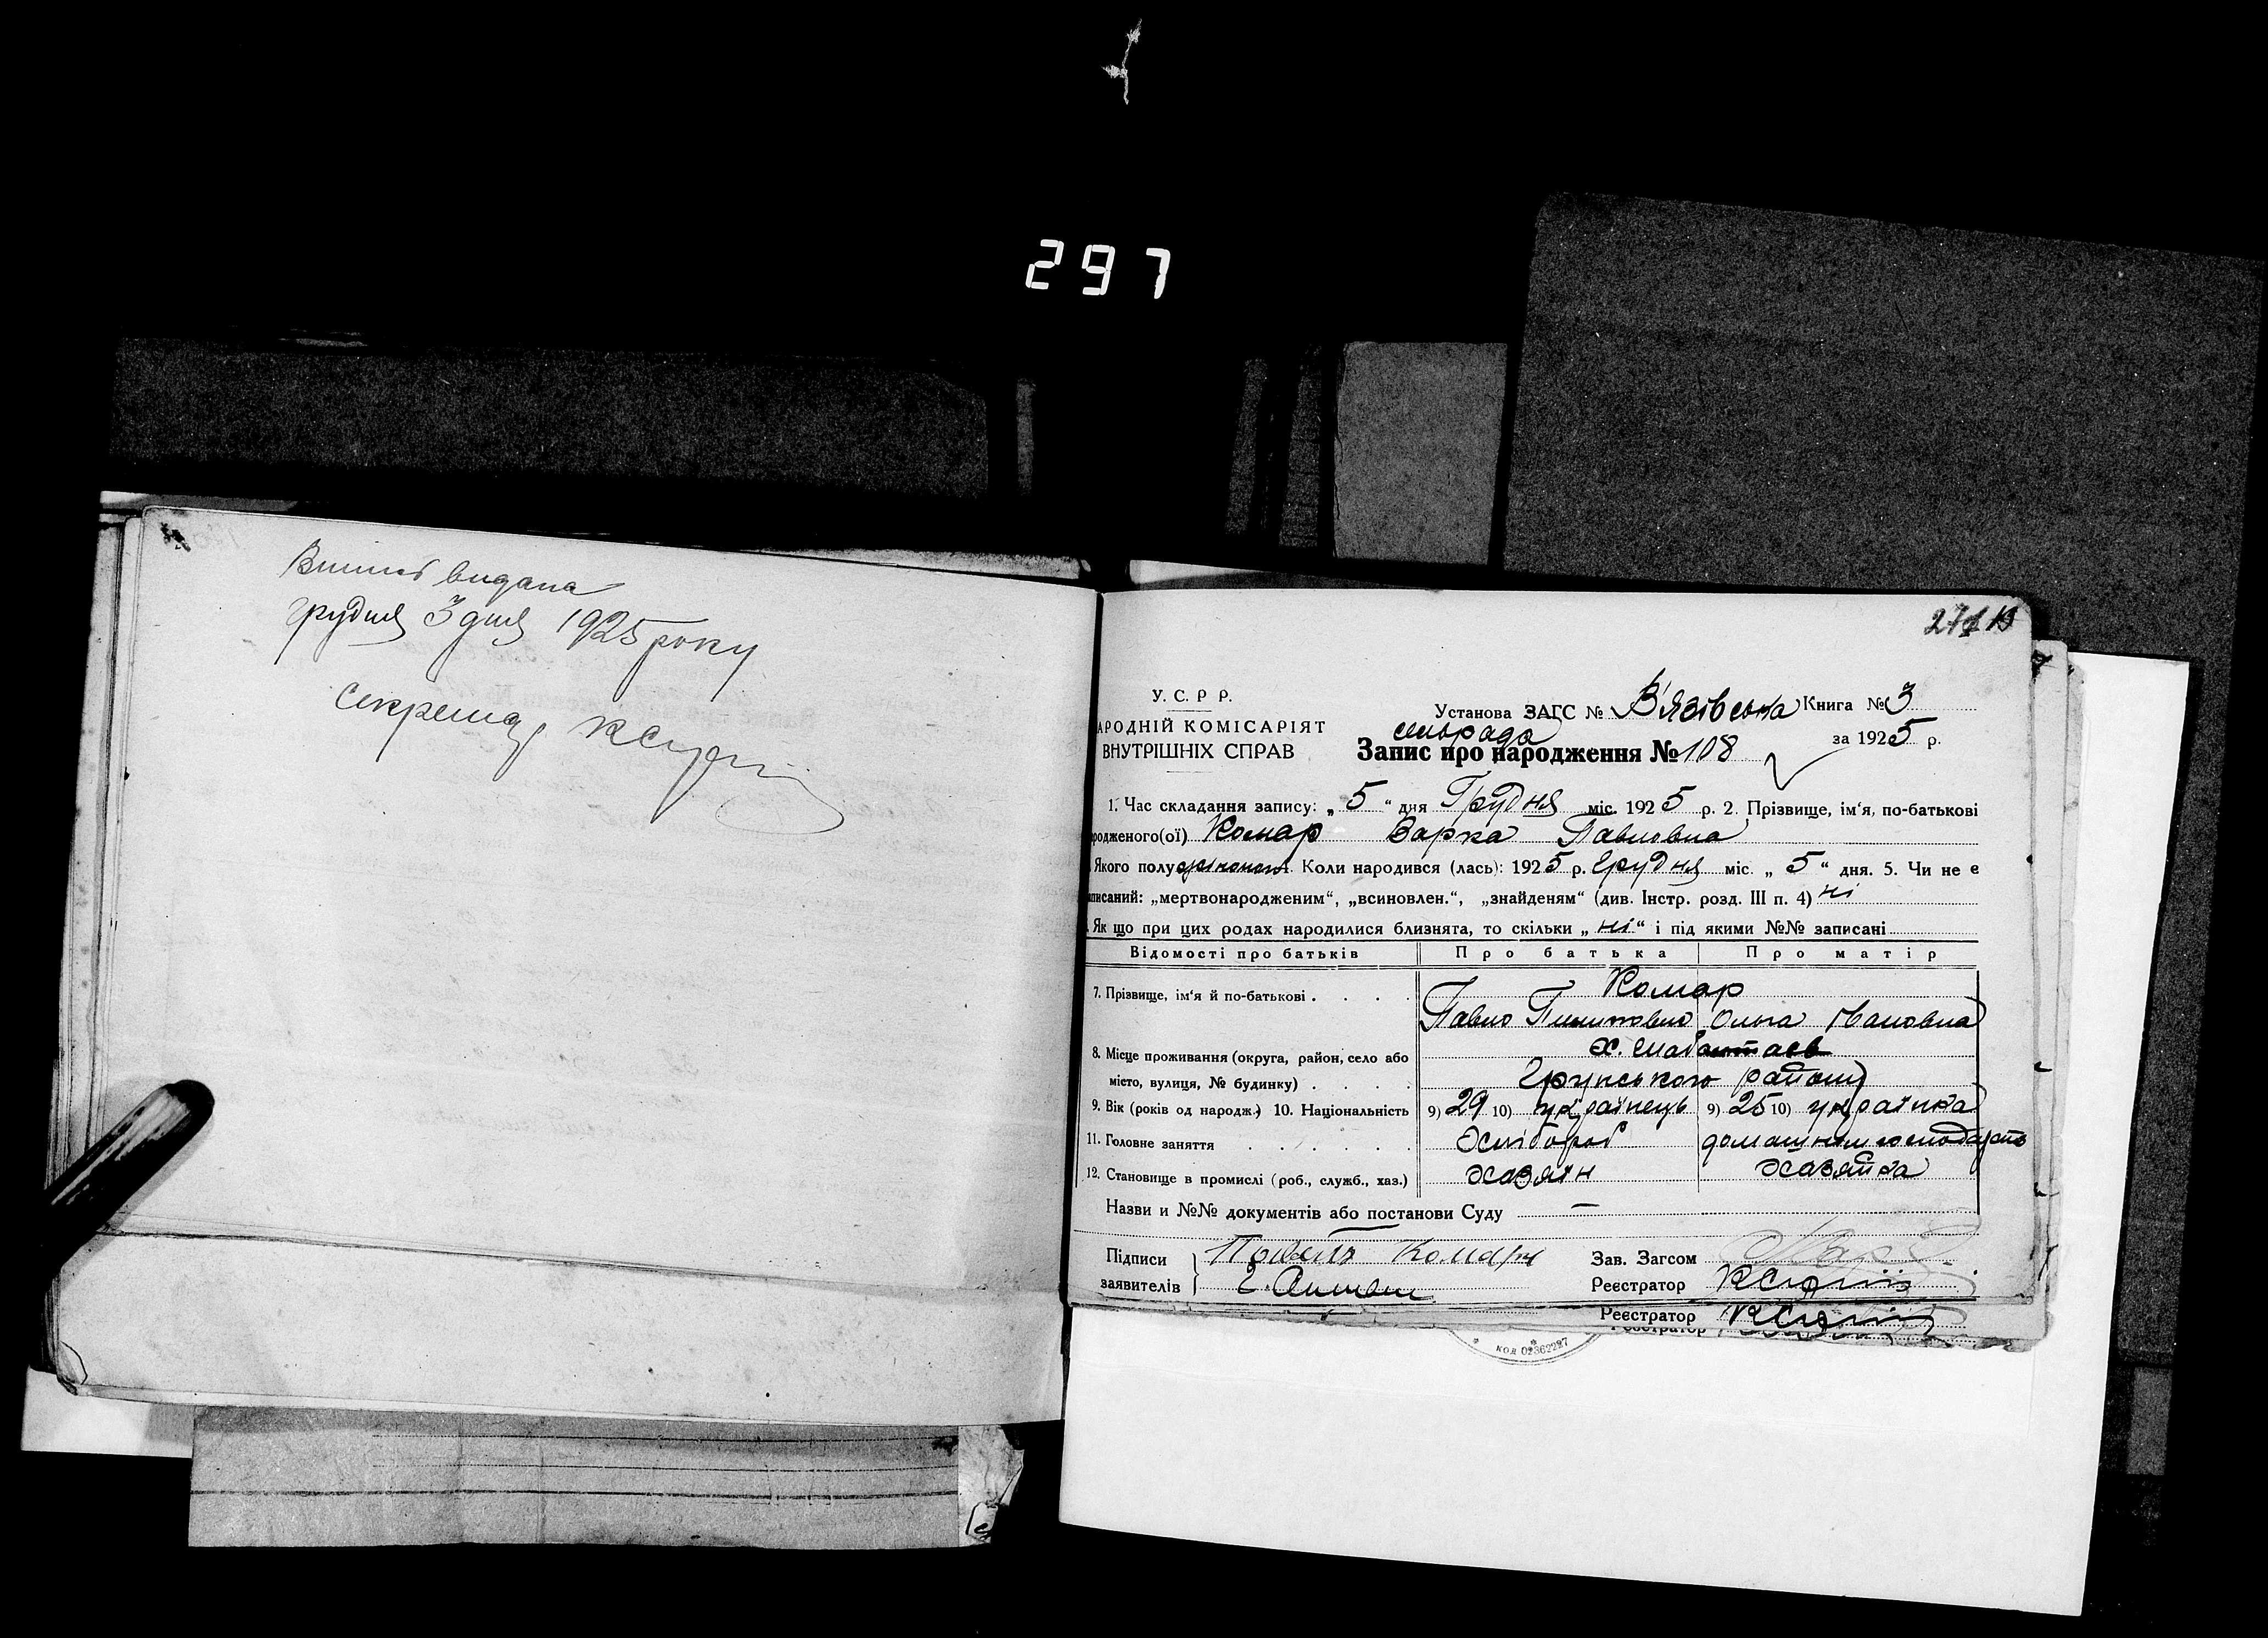 297
Виписъ видана
грудня 3 дня 1925 року
секретар
У. С. Р. Р.
АРОДНІЙ КОМІСАРІЯТ
ВНУТРІШНІХ СПРАВ
Установа ЗАГС № В'язівська Книга № 3
сільрада
Запис про народження № 108
за 1925 р.
1. Час складання запису: „ 5 “ дня Грудня міс. 1925 р. 2. Прізвище, ім‘я, по-батькові
родженого(ої) Комар Варка Павловна
Якого полу Коли народився (лась): 1925 р. Грудня міс. „ 5 “ дня. 5. Чи не є
писаний: „мертвонародженим“, „всиновлен.“, „знайденям“ (див. Інстр. розд. III п. 4) ні
Як що при цих родах народилися близнята, то скільки „ ні “ і під якими №№ записані
Відомості про батьків Про батька Про матір
7. Прізвище, ім‘я й по-батькові . . . . Комар
Павло Пилиповис Ольга Івановна
8. Місце проживання (округа, район, село або х.
місто, вулиця, № будинку) . . . . Грунського району
9. Вік (років од народж.) 10. Національність 9) 29 10) українець 9) 25 10) українка
11. Головне заняття . . . . . Хлібороб домашнєм господарств
12. Становище в промислі (роб., служб., хаз.) хазяїн хазяйка
Назви и №№ документів або постанови Суду —
Підписи Комар Зав. Загсом
заявителів Реєстратор
Реєстратор
Реєстратор
* код 02362227